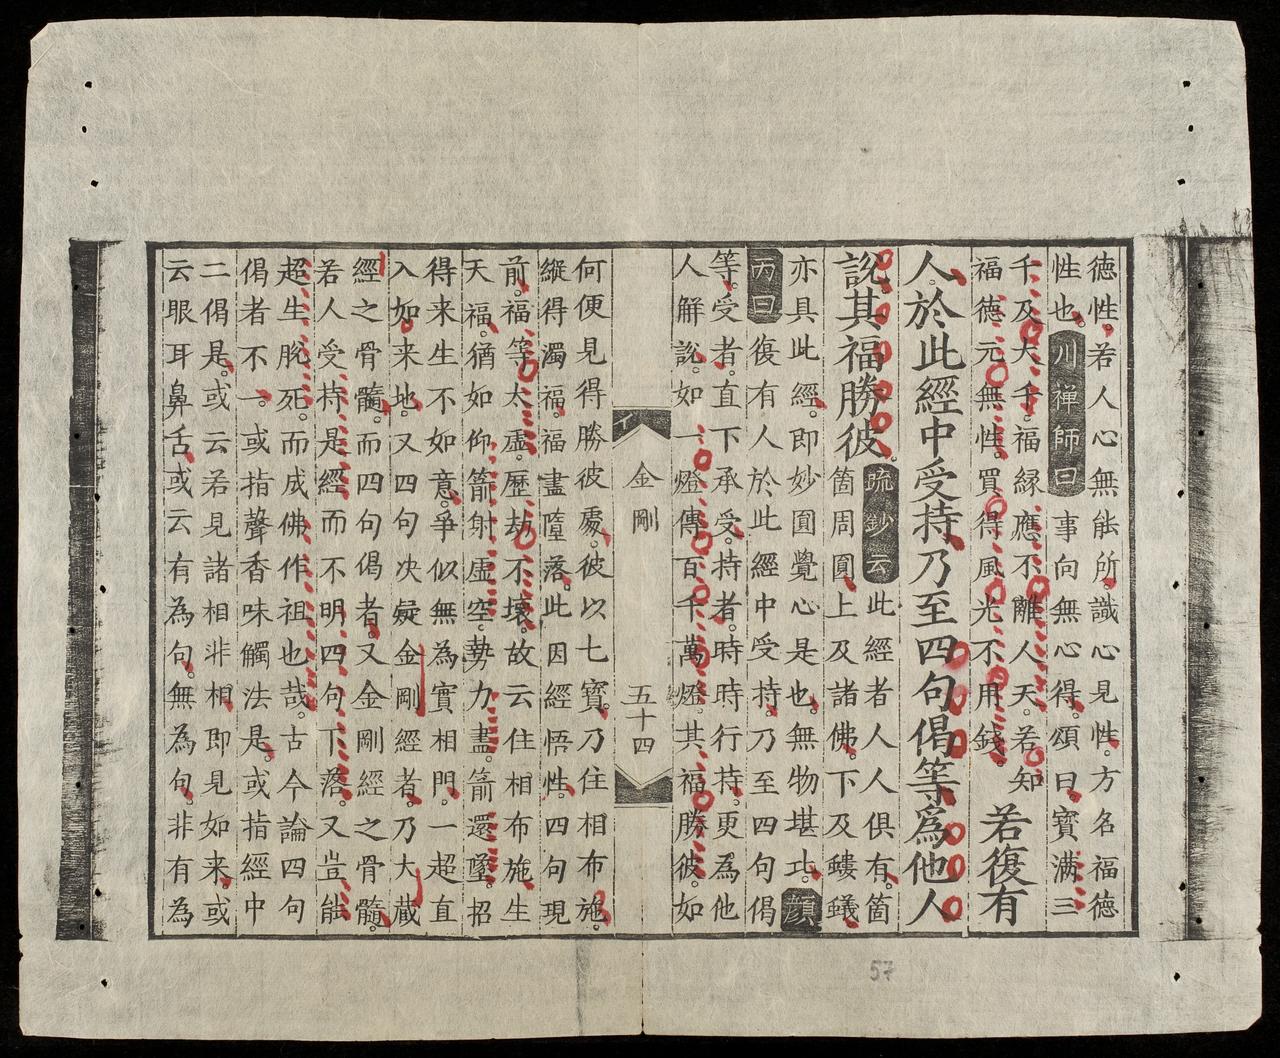 德性。若人心無能所。識心見性。方名福德
性也。川禪師曰事向無心得。頌曰。寶滿三
千及大千。福緣應不離人天。若知
福德元無性。買得風光不用錢。若復有
人。於此經中受持乃至四句偈等。為他人
說。其福勝彼。疏鈔云此經者人人俱有。箇
箇周圓。上及諸佛。下及螻蟻。
亦具此經。即妙圓覺心是也。無物堪比。顏
丙曰復有人於此經中受持。乃至四句偈
等。受者。直下承受。持者。時時行持。更為他
人解說。如一燈傳百千萬燈。其福勝彼。如
金剛
五十四
何便見得勝彼處。彼以七寶。乃住相布施。
縱得濁福。福盡墮落。此因經悟性。四句現
前。福等太虛。歷劫不壞。故云住相布施生
天福。猶如仰箭射虛空。勢力盡。箭還墜。招
得來生不如意。爭似無為實相門。一超直
入如來地。又四句決疑金剛經者。乃大藏
經之骨髓。而四句偈者。又金剛經之骨髓。
若人受持是經。而不明四句下落。又豈能
超生脫死。而成佛作祖也哉。古今論四句
偈者不一。或指聲香味觸法是。或指經中
二偈是。或云若見諸相非相。即見如來。或
云眼耳鼻舌。或云有為句。無為句。非有為
57